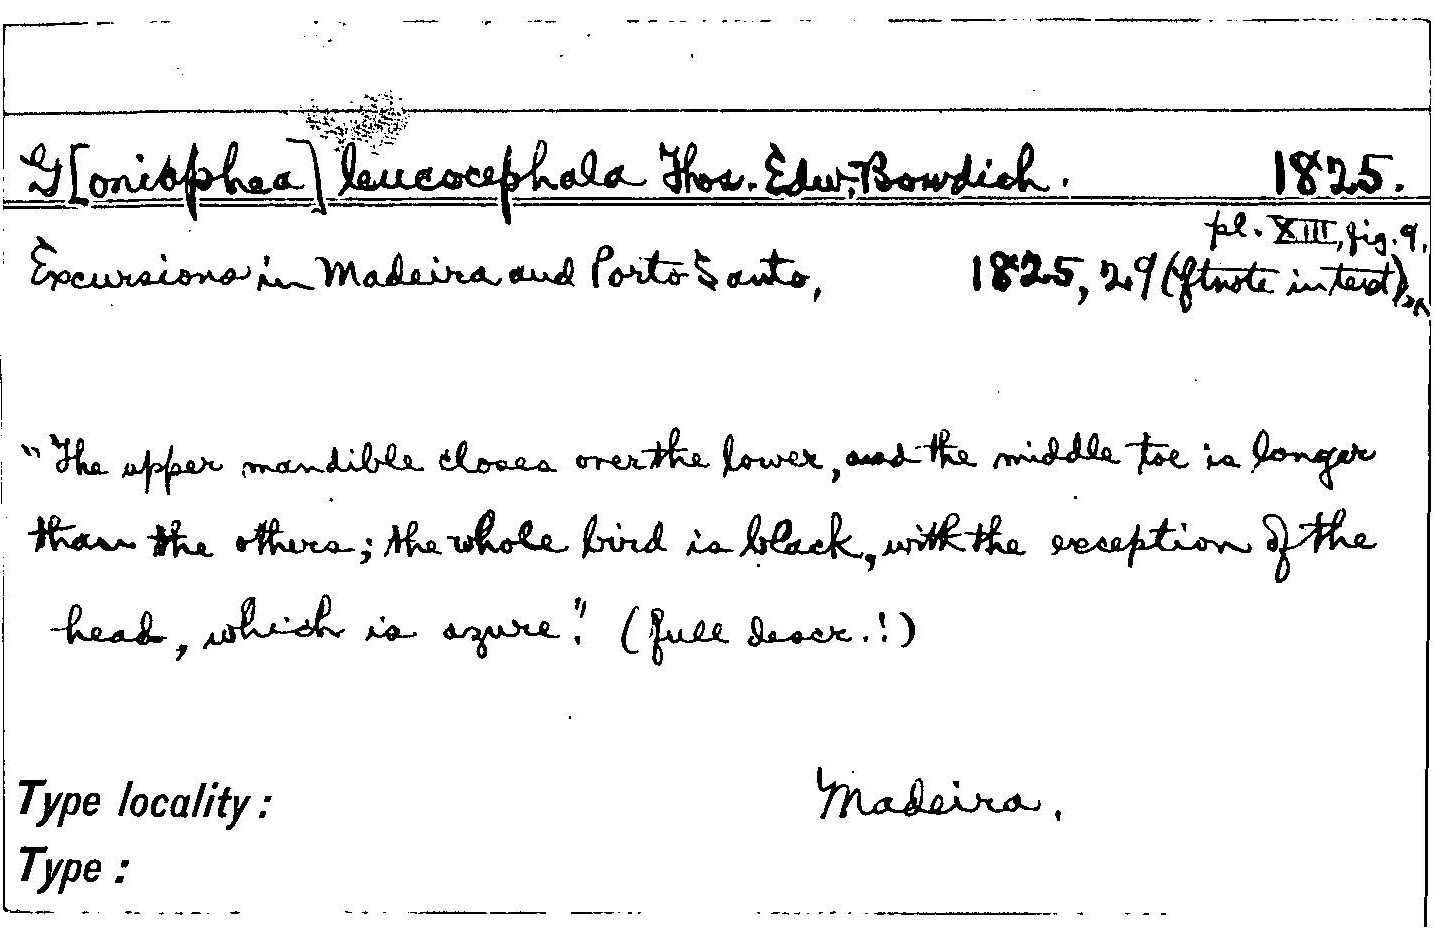 G[oniaphea] leucocephala Thos. Edw. Bowdich. 1825.
pl. XIII, fig. 9.
Excursions in Madeira and Porto Santo, 1825, 29 (ftnote in text),
"The upper mandible closes over the lower, and the middle toe is longer
than the others; the whole bird is black, with the exception of the
head, which is azure." (full descr.!)
Type locality: Madeira.
Type: